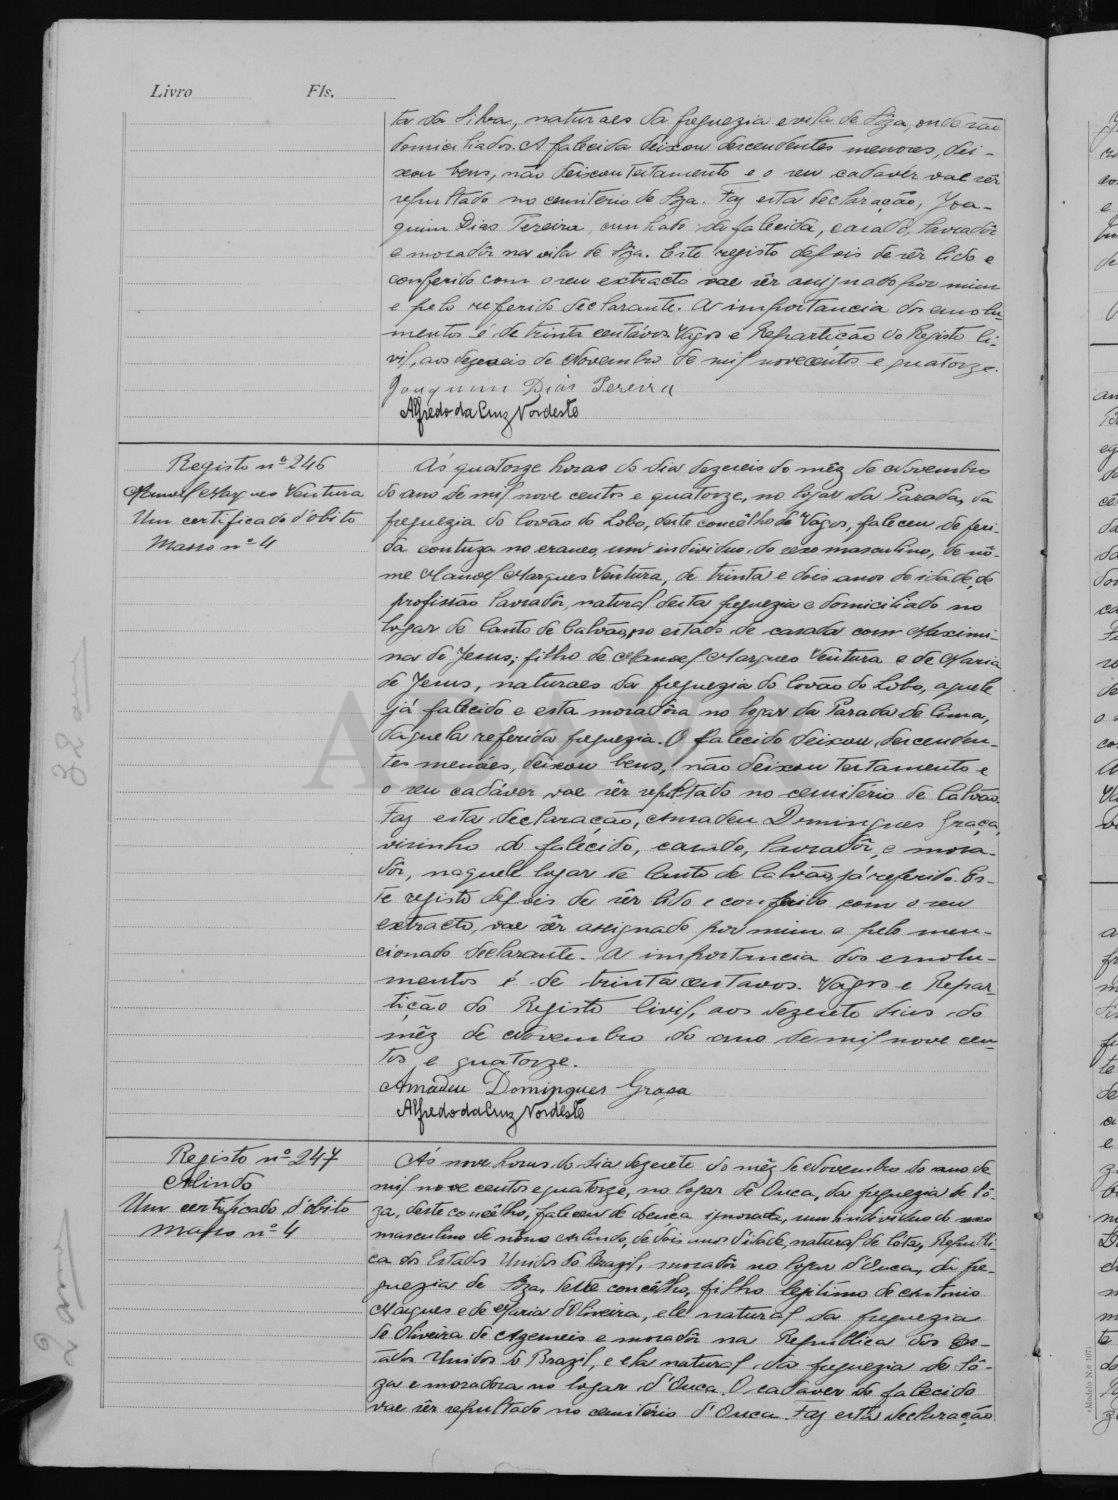 Livro Fls.
ta da Silva, naturaes da freguezia e vila de Sôza, onde são
domiciliados. A falecida deixou descendentes menores, dei-
xou bens, não deixou testamento e o seu cadavér vae sêr
sepultado no cemiterio de Sôza. Faz esta declaração, Joa-
quim Dias Pereira, cunhado da falecida, casado, lavradôr
e moradôr na vila de Sôza. Este registo depois de sêr lido e
conferido com o seu extracto vae sêr assignado por mim
e pelo referido declarante. A importancia dos emolu-
mentos é de trinta centávos. Vagos e Repartição do Registo Ci-
vil, aos dezeseis de Novembro de mil novecentos e quatorze.
Joaquim Dias Pereira
Alfredo da Cruz Nordeste
Registo nº 246
Manoel Marques Ventura
Um certificado d'óbito
Masso nº 4
32 anos
Ás quatorze horas do dia dezeseis do mêz de Novembro
do ano de mil nove centos e quatorze, no logar da Parada, da
freguezia do Covão do Lobo, deste concêlho de Vagos, faleceu de feri-
da contuza no craneo, um individuo do sexo masculino, de nô-
me Manoel Marques Ventura, de trinta e dois anos de idade, de
profissão lavradôr, natural desta freguezia e domiciliado no
logar de Canto de Calvão, no estado de casado com Maximi-
na de Jesus; filho de Manoel Marques Ventura e de Maria
de Jesus, naturaes da freguezia do Covão do Lobo, aquele
já falecido e esta moradôra no logar da Parada de Cima,
daquela referida freguezia. O falecido deixou descenden-
tes menóes, deixou bens, não deixou testamento e
o seu cadáver vae sêr sepultado no cemitério de Calvão.
Faz esta declaração, Amadeu Domingues Graça,
visinho do falécido, casado, lavradôr, e mora-
dôr, naquele logar de Canto de Calvão, já referido. Es-
te registo depois de sêr lido e conferido com o seu
extracto, vae sêr assignado por mim e pelo men-
cionado declarante. A importancia dos emolu-
mentos é de trinta centavos. Vagos e Repar-
tição do Registo Civil, aos dezesete dias do
mêz de Novembro do ano de mil nove cen-
tos e quatorze.
Amadeu Domingues Graça
Alfredo da Cruz Nordeste
Registo nº 247
Arlindo
Um certificado d'óbito
Masso nº 4
2 anos
Ás nove horas do dia dezesete do mêz de Novembro do ano de
mil nove centos e quatorze, no logar de Ouca, da freguezia de Sô-
za, deste concêlho, faleceu de doença ignorada, um individuo do sexo
masculino de nome Arlindo, de dois anos d'idade, natural de Republi-
ca dos Estados Unidos do Brazil, moradôr no logar d'Ouca, da fre-
guezia de Sôza, deste concêlho, filho legitimo de Antonio
Marques e de Maria d'Oliveira, ele natural da freguezia
de Oliveira de Azemeis e moradôr na Republica dos Es-
tados Unidos do Brazil, e ela natural da freguezia de Sô-
za e moradora no logar d'Ouca. O cadaver do falecido
vae sêr sepultado no cemitério d'Ouca. Faz esta declaração
(Modelo N.º 107)